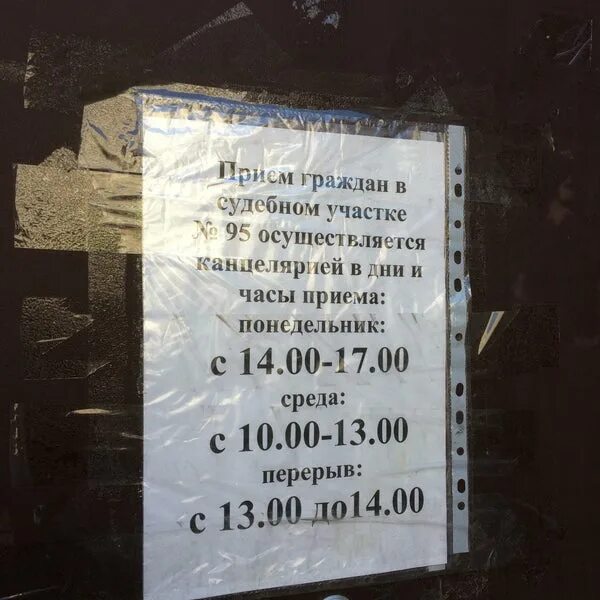 Прием граждан в
судебном участке
№ 95 осуществляется
канцелярией в дни и
часы приема:
понедельник:
с 14.00-17.00
среда:
с 10.00-13.00
перерыв:
с 13.00 до14.00